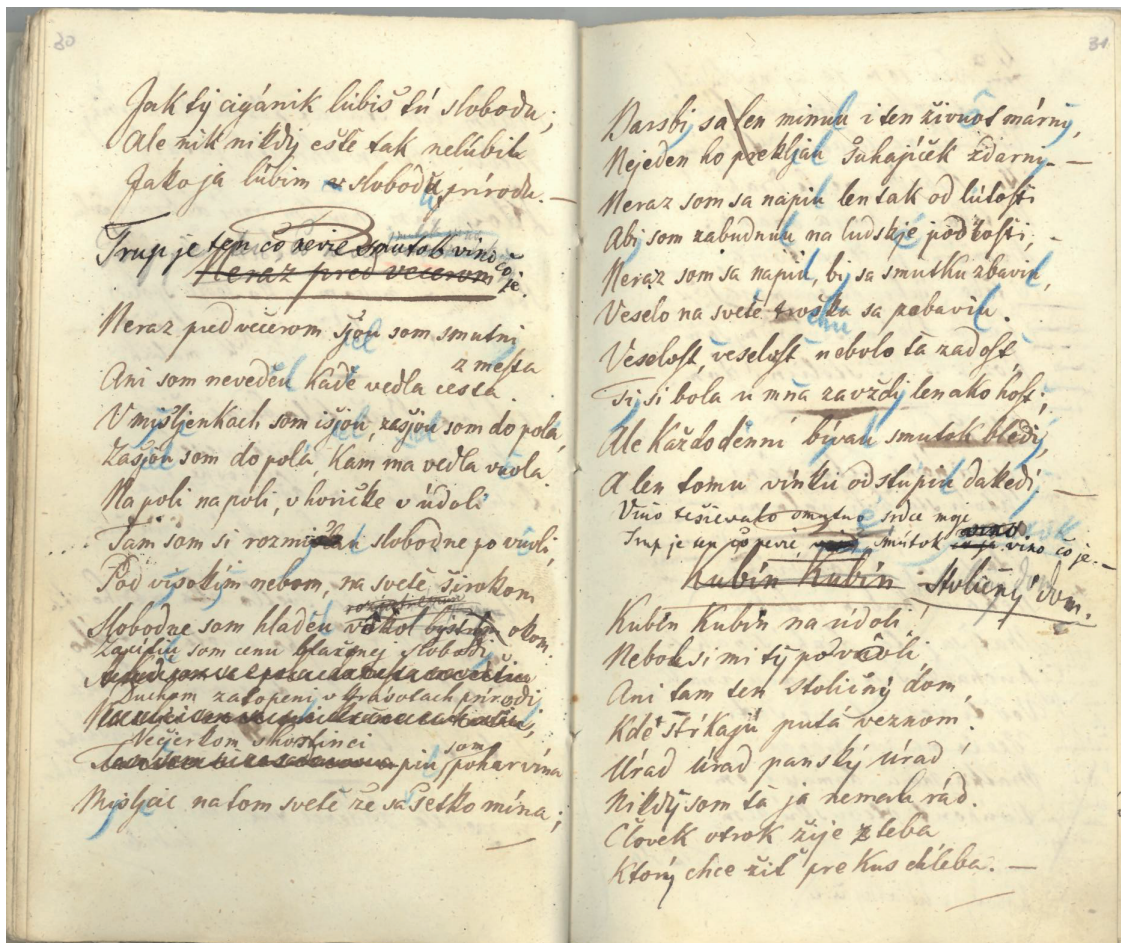 30
Jak tý cigánik lúbiš tú slobodu;
Ale nik nikdý ešte tak nelúbil
Jako ja lúbim v slobodu prírodu. —
Trup je ten čo nevie smutok vino čo je.
Neraz pred večerom
Neraz pred večerom šjou som smutni
z mesta
Ani som nevedeu kade vedla cesta.
V mišljenkach som išjou, zašjou som do pola,
Zašjou som do pola, kam ma vedla vuola.
Na poli na poli, v horičke v údoli
Tam som si slobodne po vuoli,
Pod visokím nebom, na svete širokom
Slobodne som hladeu vôkol okom.
Zacítiu som cenu blaženej slobodi
Duchom zatopeni v krásotach prírodi,
Večierkom v hostinci
piu som pohár vína
Mysljac na tom svete že sa šetko mína;
31
Darsbi sa len minuu i ten živuot márny,
Nejeden ho prekljau šuhajíček zdarny. —
Neraz som sa napiu len tak od lútosti
Abi som zabudnuu na ludskje podlosti, —
Neraz som sa napiu, bi sa smutku zbaviu,
Veselo na svete troška sa zabaviu.
Veselosť, veselosť nebolo ťa zadosť
Ti si bola u mňa zavždi len ako hosť;
Ale každodenní bívau smutok bledi,
A len tomu vínku odstupiu dakedi —
Víno tešievalo smutno srdce moje
Trup je ten čo nevie, smútok vino čo je. —
Kubín Kubín Stoličný dom.
Kubín Kubín na údoli!
Nebou si mi tý po vôli,
Ani tam ten stoličný dom,
Kde štŕkajú putá veznom.
Úrad úrad panský úrad!
Nikdý som ťa ja nemau rád.
Človek otrok žije z teba
Ktorý chce žiť pre kus chleba. —